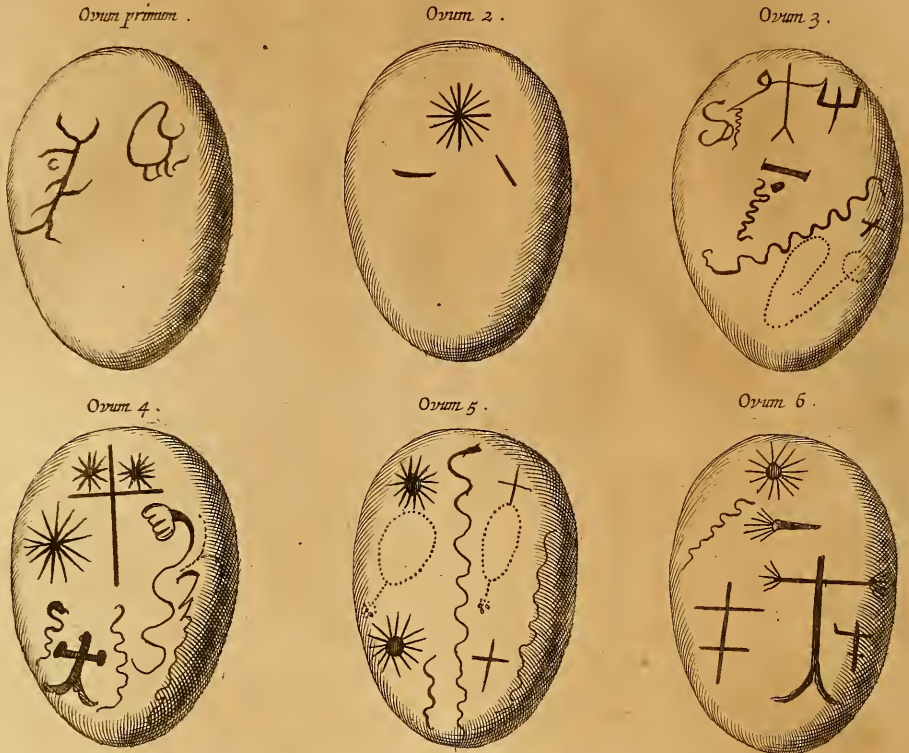 Ovum primum.
Ovum 2.
Ovum 3.
Ovum 4.
Ovum 5.
Ovum 6.